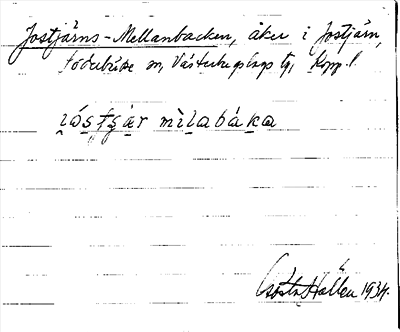 Jostjärns-Mellanbacken, åker i Jostjärn,
Söderbärke sn, Västerbergslags tg, Kopp. l.
ı̯ó̤stʂär mìlabáka
Gösta Hallén 1934.